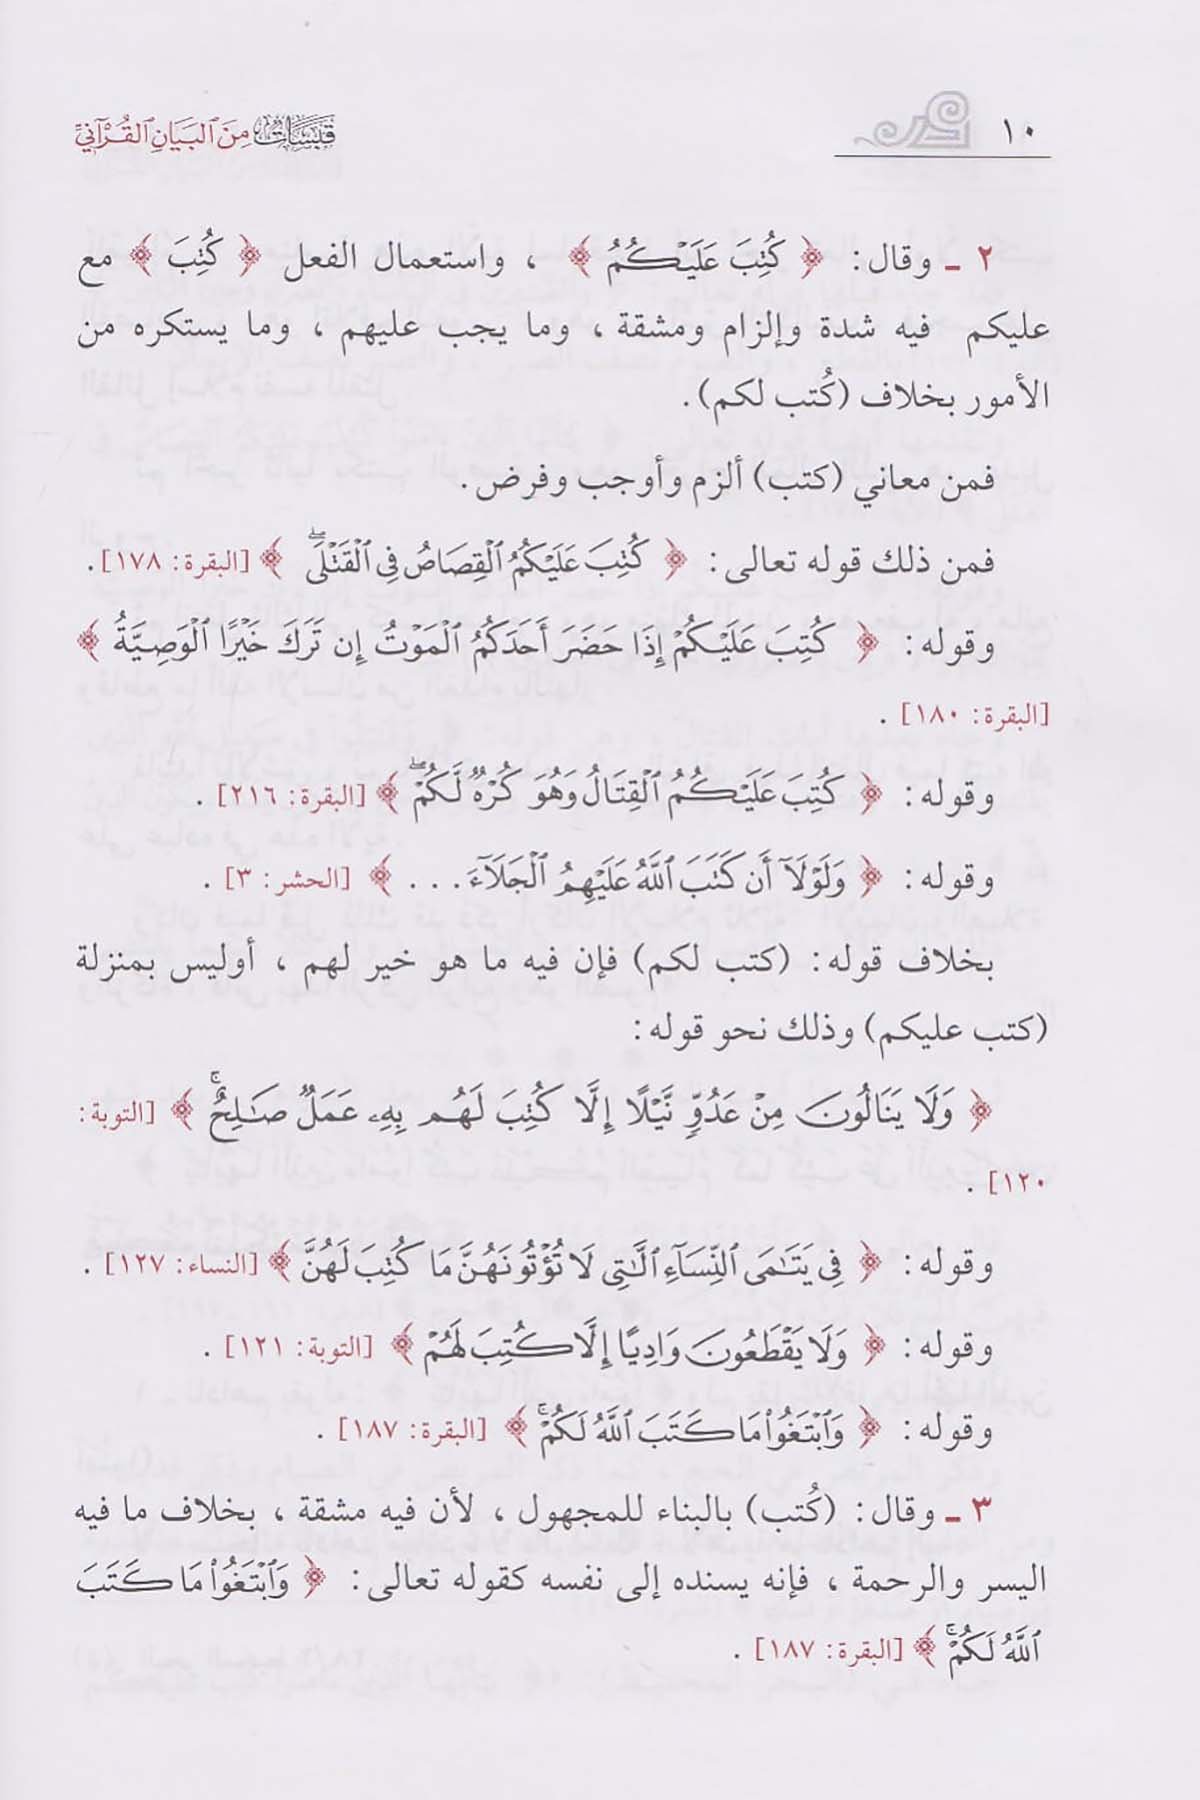 ١٠
قَبَسَات مِنَ البَيَانِ القُرْآنِيّ
٢ ـ وقال: ﴿ كُتِبَ عَلَيْكُمُ ﴾ ، واستعمال الفعل ﴿ كُتِبَ ﴾ مع
عليكم فيه شدة وإلزام ومشقة ، وما يجب عليهم ، وما يستكره من
الأمور بخلاف (كُتب لكم).
فمن معاني (كتب) ألزم وأوجب وفرض.
فمن ذلك قوله تعالى: ﴿ كُتِبَ عَلَيْكُمُ ٱلْقِصَاصُ فِى ٱلْقَتْلَىۖ ﴾ [البقرة: ١٧٨].
وقوله: ﴿ كُتِبَ عَلَيْكُمْ إِذَا حَضَرَ أَحَدَكُمُ ٱلْمَوْتُ إِن تَرَكَ خَيْرًا ٱلْوَصِيَّةُ ﴾
[البقرة: ١٨٠] .
وقوله: ﴿ كُتِبَ عَلَيْكُمُ ٱلْقِتَالُ وَهُوَ كُرْهٌ لَّكُمْۖ ﴾ [البقرة: ٢١٦] .
وقوله: ﴿ وَلَوْلَآ أَن كَتَبَ ٱللَّهُ عَلَيْهِمُ ٱلْجَلَآءَ... ﴾ [الحشر: ٣] .
بخلاف قوله: (كتب لكم) فإن فيه ما هو خير لهم ، أوليس بمنزلة
(كتب عليكم) وذلك نحو قوله:
﴿ وَلَا يَنَالُونَ مِنْ عَدُوٍّ نَّيْلًا إِلَّا كُتِبَ لَهُم بِهِۦ عَمَلٌ صَٰلِحٌۚ ﴾ [التوبة:
١٢٠] .
وقوله: ﴿ فِى يَتَٰمَى ٱلنِّسَآءِ ٱلَّٰتِى لَا تُؤْتُونَهُنَّ مَا كُتِبَ لَهُنَّ ﴾ [النساء: ١٢٧] .
وقوله: ﴿ وَلَا يَقْطَعُونَ وَادِيًا إِلَّا كُتِبَ لَهُمْ ﴾ [التوبة: ١٢١] .
وقوله: ﴿ وَٱبْتَغُوا۟ مَا كَتَبَ ٱللَّهُ لَكُمْۚ ﴾ [البقرة: ١٨٧] .
٣ ـ وقال: (كُتب) بالبناء للمجهول ، لأن فيه مشقة ، بخلاف ما فيه
اليسر والرحمة ، فإنه يسنده إلى نفسه كقوله تعالى: ﴿ وَٱبْتَغُوا۟ مَا كَتَبَ
ٱللَّهُ لَكُمْۚ ﴾ [البقرة: ١٨٧] .